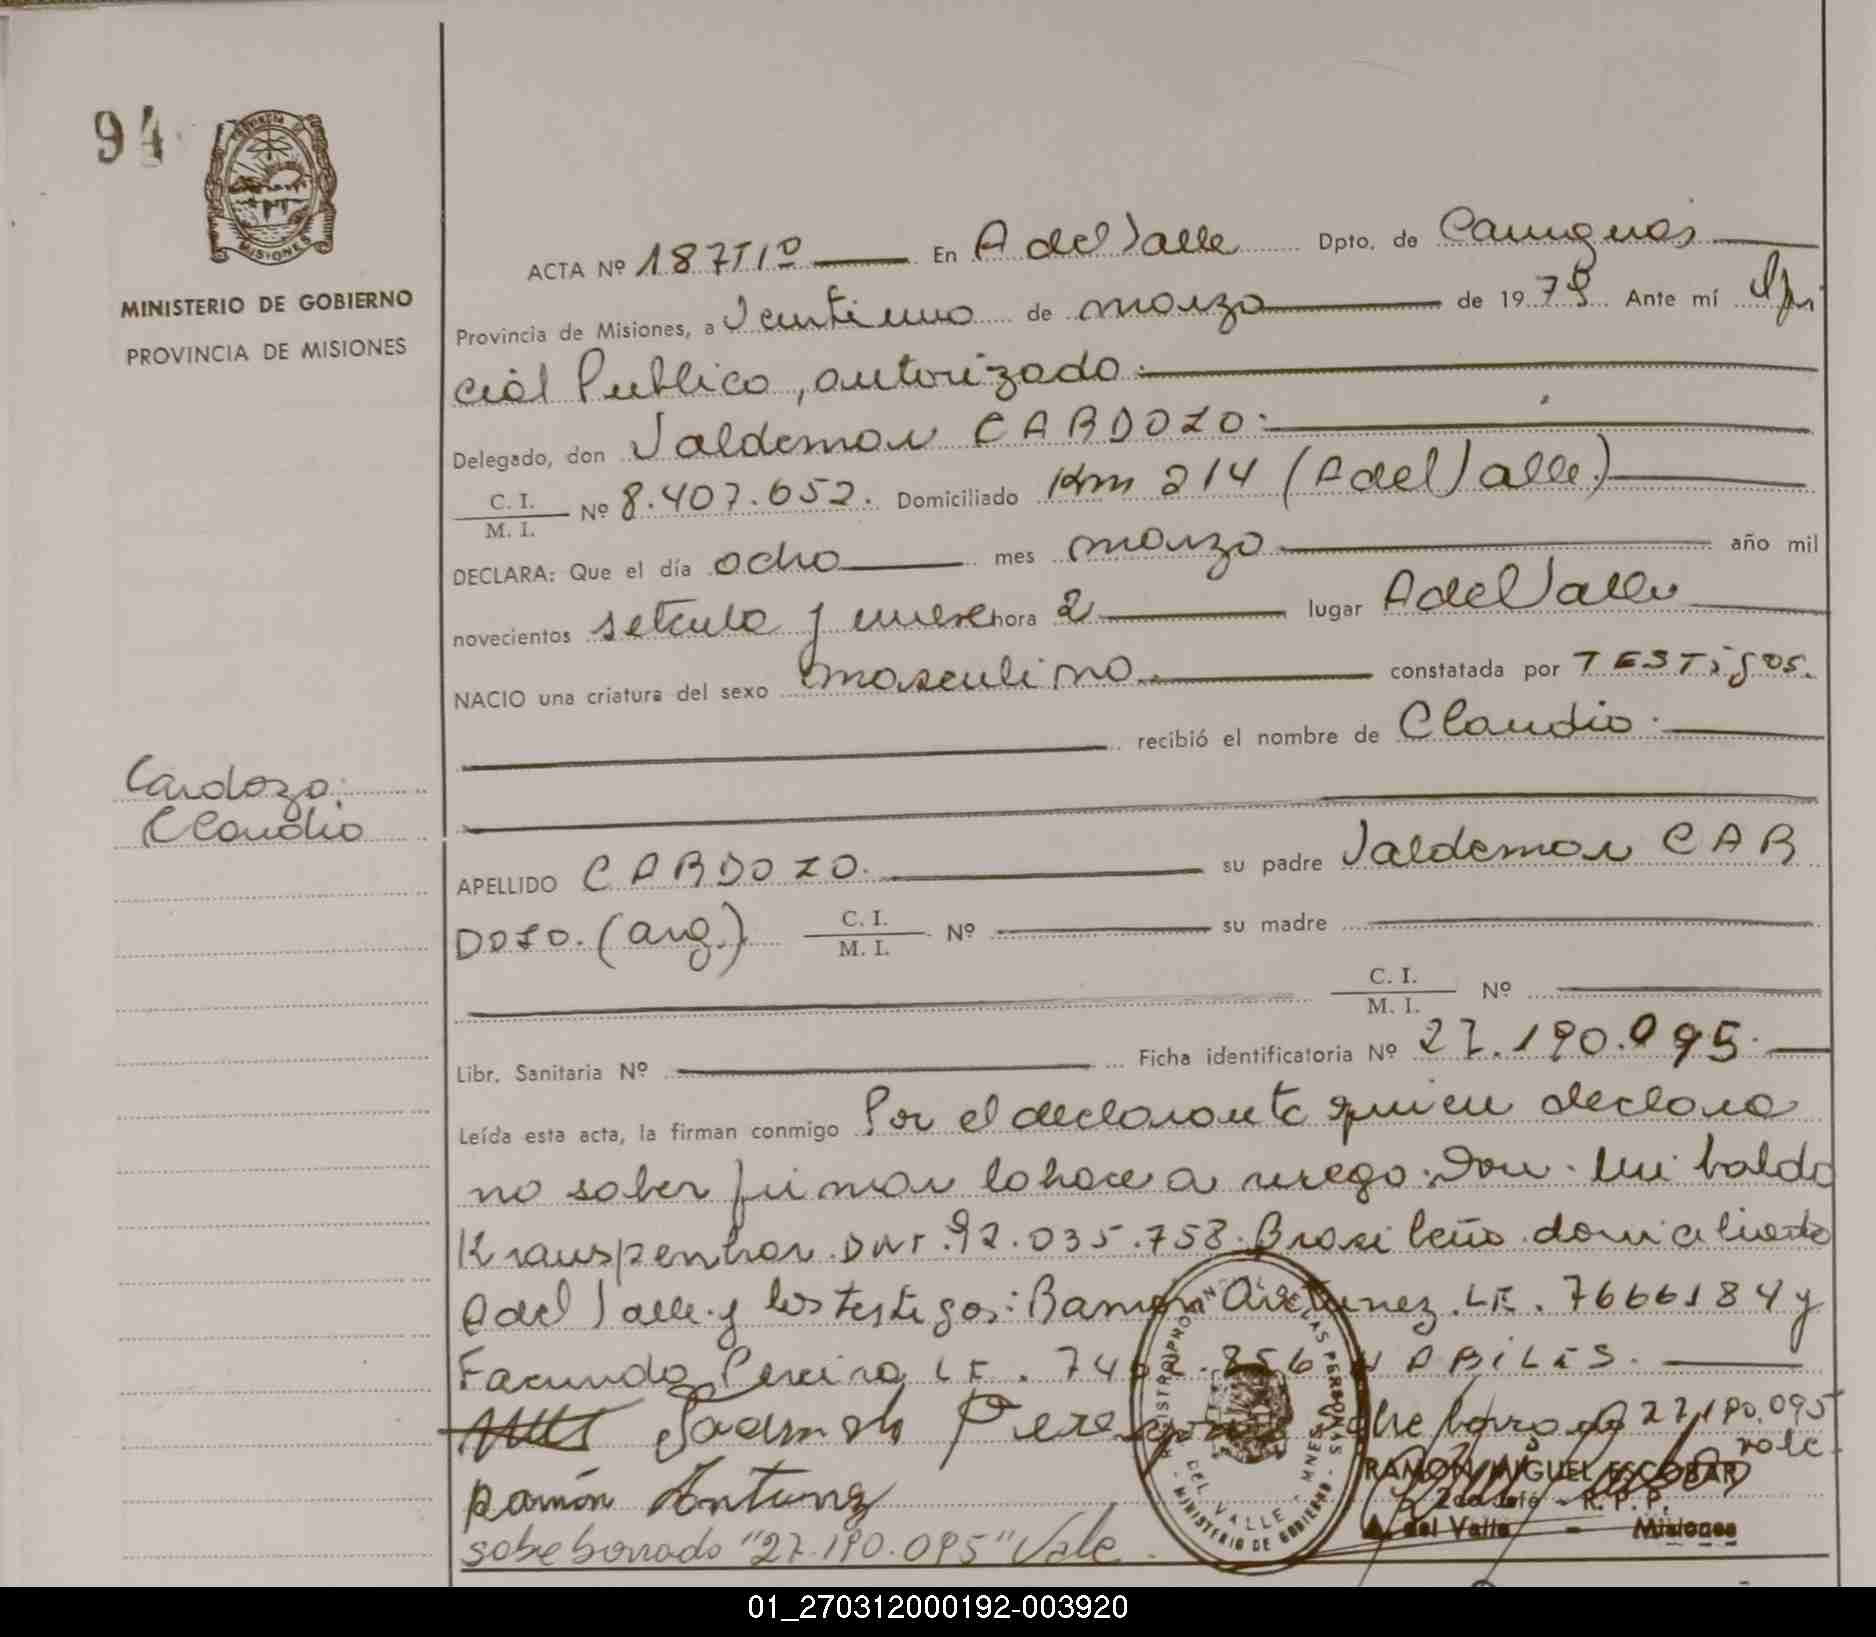 94
PROVINCIA DE
MISIONES
MINISTERIO DE GOBIERNO
PROVINCIA DE MISIONES
ACTA Nº 187TIº En A del Valle Dpto. de Cainguas
Provincia de Misiones, a Veintiuno de marzo de 1979 Ante mí Ofi
cial Publico, autorizado.
Delegado, don Valdemar CARDOZO.
C. I.
M. I. Nº 8.407.652. Domiciliado Km 214 (A del Valle)
DECLARA: Que el día ocho mes marzo año mil
novecientos setenta y nueve hora 2 lugar A del Valle
NACIO una criatura del sexo masculino. constatada por TESTigos.
recibió el nombre de Claudio.
Cardozo.
Claudio
APELLIDO CARDOZO. su padre Valdemar CAR
DOZO. (arg.) C. I.
M. I. Nº su madre
C. I.
M. I. Nº
Libr. Sanitaria Nº Ficha identificatoria Nº 27.190.095.
Leída esta acta, la firman conmigo Por el declarante quien declara
no saber firmar lo hace a ruego. Don. baldo
DNI. 92.035.758. Brasileño domiciliado
A del Valle y los testigos: Ramón Antunez. LE. 7666184 y
Facundo Pereira LE. HABILES.
27.190.095
vale
RAMON MIGUEL ESCOBAR
2do Jefe - R. P. P.
A. del Valle - Misiones
Ramón Antunez
sobe borrado "27.190.095" Vale.
REGISTRO PROVINCIAL DE LAS PERSONAS
DEL VALLE - MNES
MINISTERIO DE GOBIERNO
01_270312000192-003920